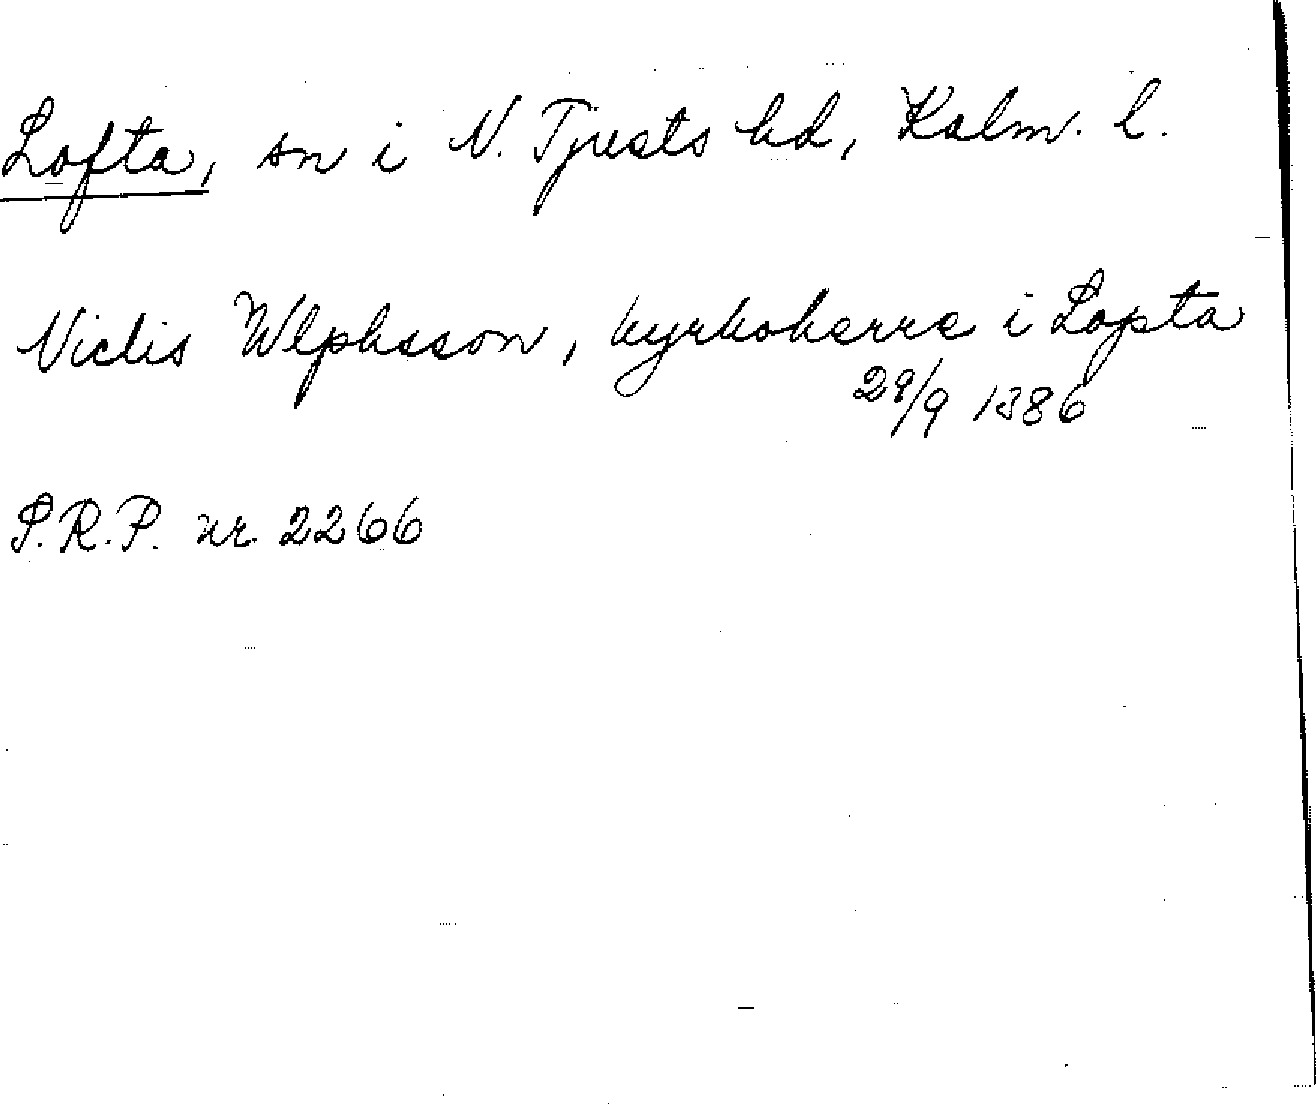 Lofta, sn i N. Tjusts hd, Kalm. l.
Niclis Wlphsson, kyrkoherre i Lopta
29/9 1386
S.R.P. nr. 2266